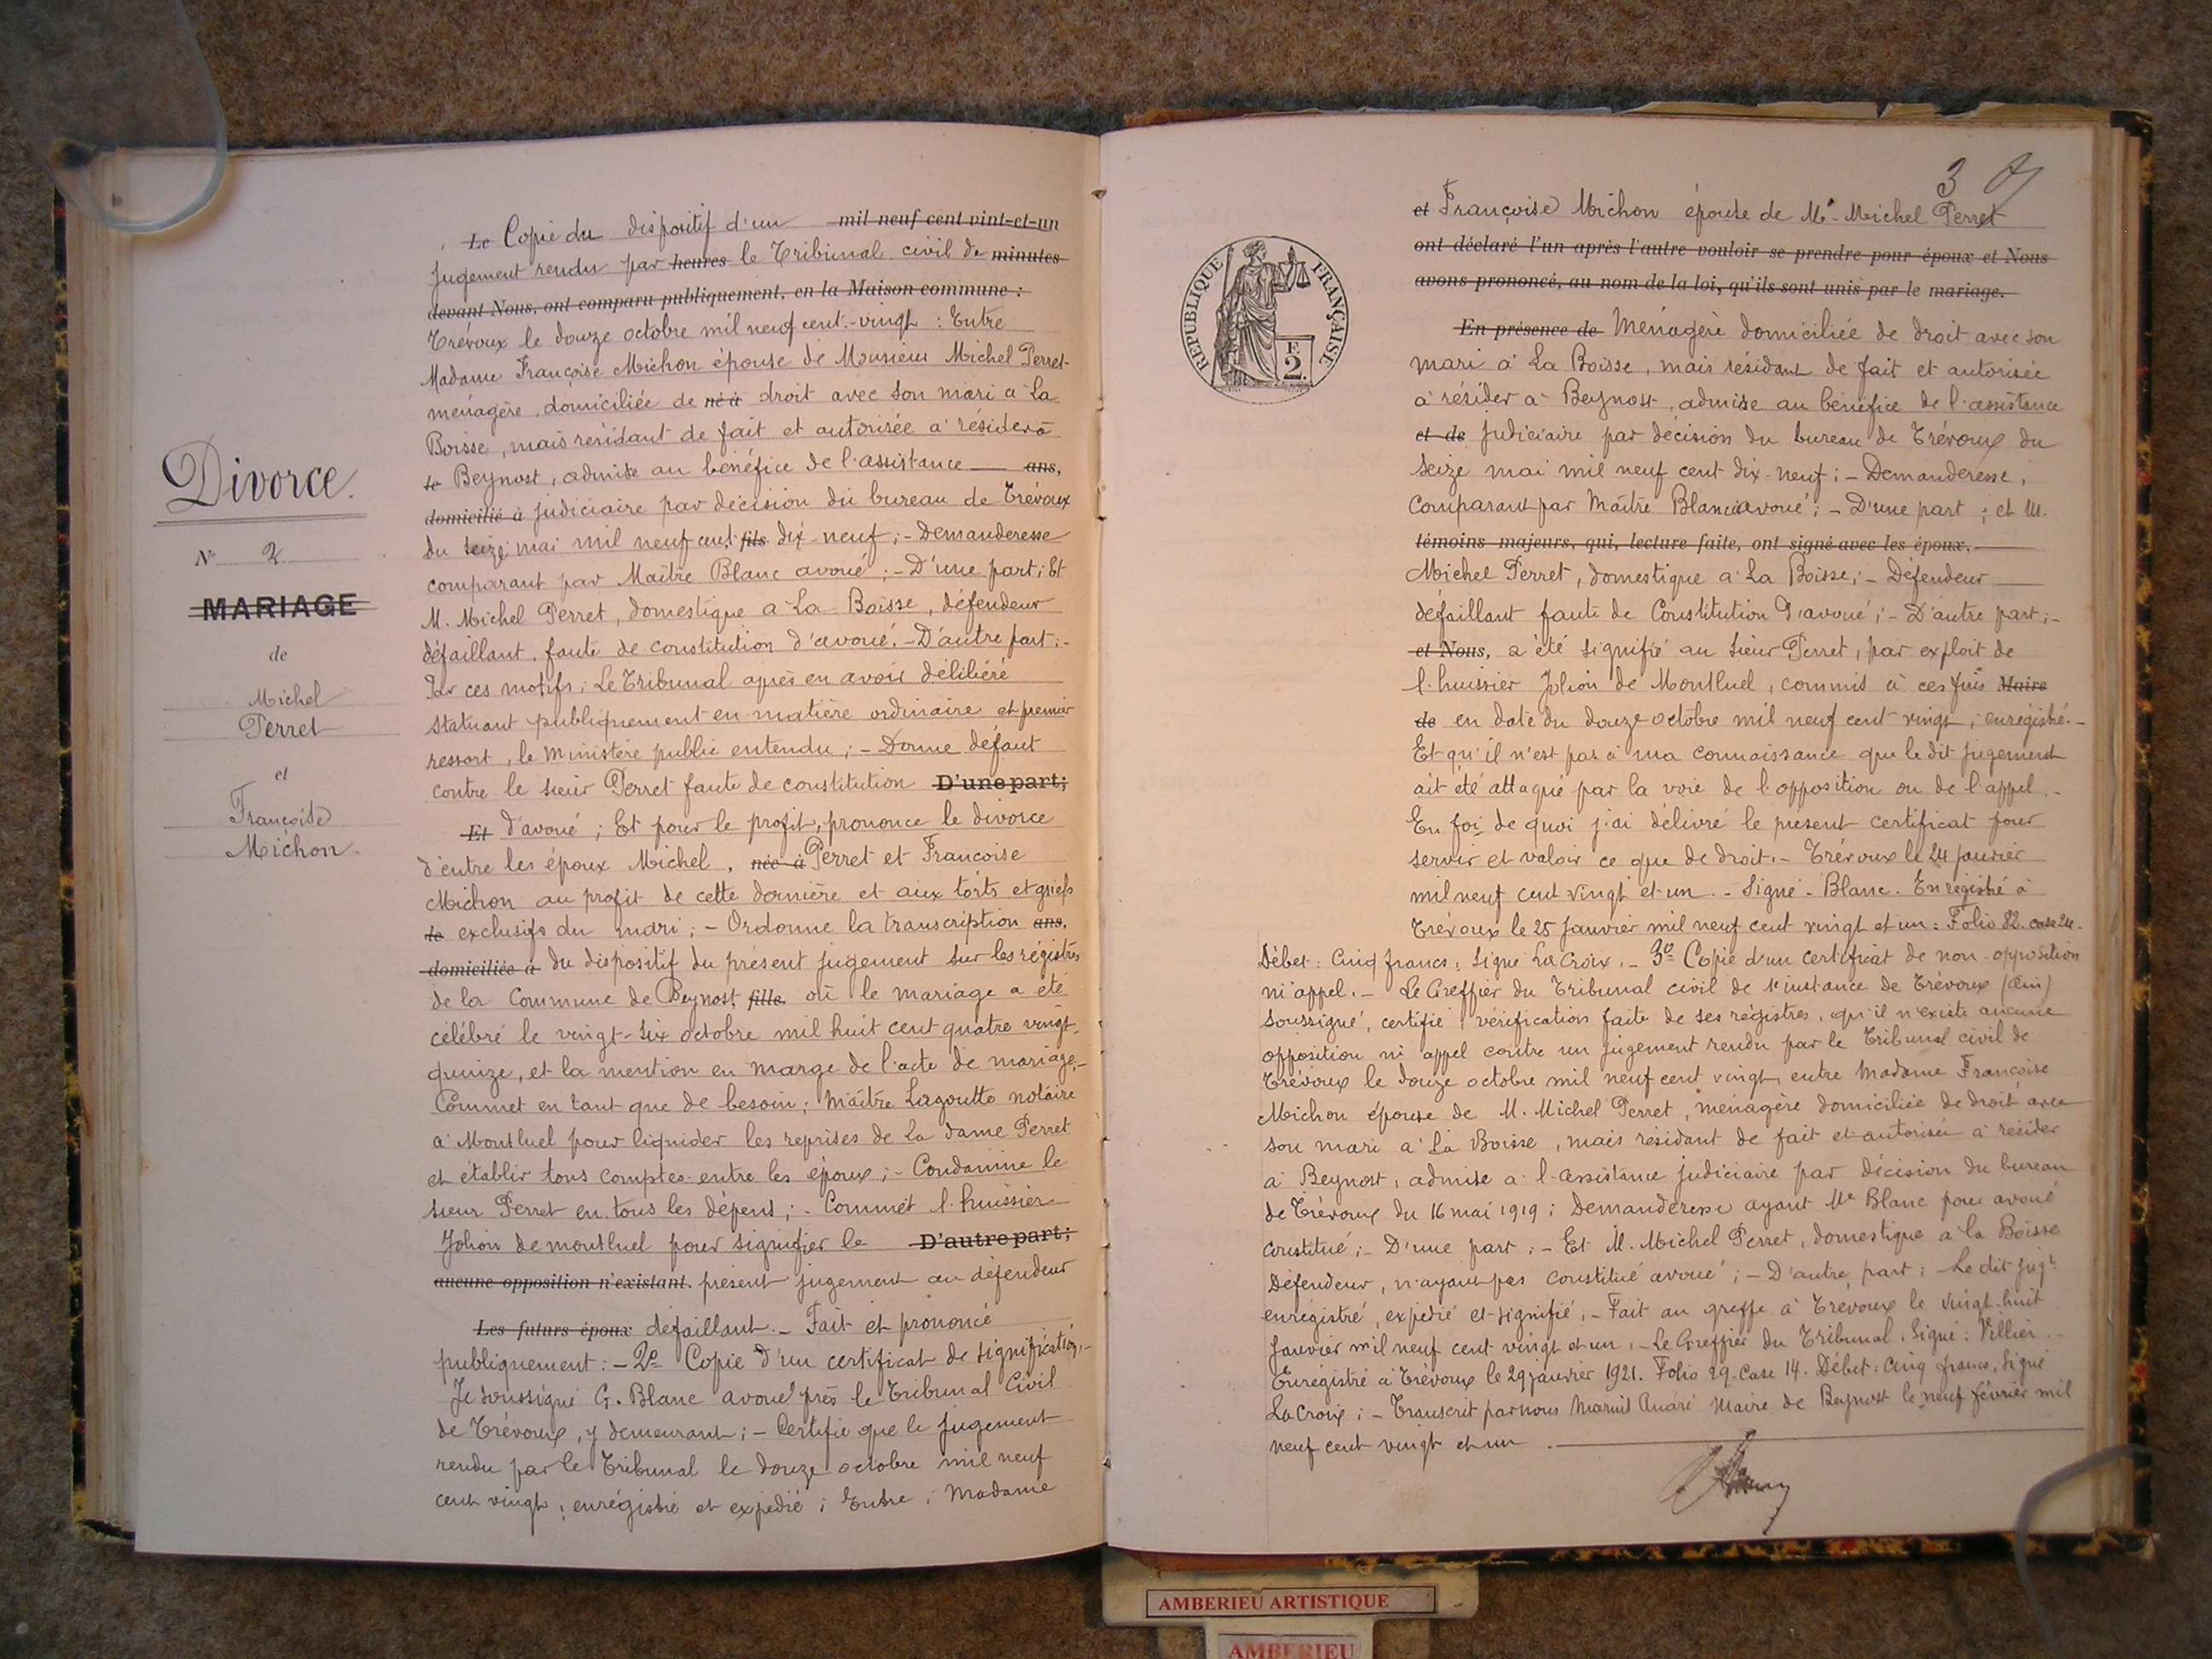 Divorce.
N° 2
MARIAGE
de
Michel
Perret
et
Françoise
Michon.
Le Copie du dispositif d'un mil neuf cent vint-et-un
jugement rendu par heures le Tribunal civil de minutes
devant Nous, ont comparu publiquement, en la Maison commune :
Trévoux le douze octobre mil neuf cent-vingt : Entre
Madame Françoise Michon épouse de Monsieur Michel Perret
ménagère, domiciliée de né à droit avec son mari à La
Boisse, mais résidant de fait et autorisée à résider à
le Beynost, admise au bénéfice de l'assistance ans,
domicilié à judiciaire par décision du bureau de Trévoux
du seize mai mil neuf cent fils dix-neuf ; - Demanderesse
comparant par Maître Blanc avoué ; - D'une part ; Et
M. Michel Perret, domestique à La Boisse, défendeur
défaillant, faute de constitution d'avoué. - D'autre part : -
Par ces motifs ; Le Tribunal après en avoir délibéré
statuant publiquement en matière ordinaire et premier
ressort, le ministère public entendu ; - Donne défaut
contre le sieur Perret faute de constitution D'une part;
Et d'avoué ; Et pour le profit, prononce le divorce
d'entre les époux Michel, née à Perret et Françoise
Michon au profit de cette dernière et aux torts et griefs
le exclusifs du mari ; - Ordonne la transcription ans,
domiciliée à du dispositif du présent jugement sur les régistres
de la Commune de Beynost fille. où le mariage a été
célébré le vingt-six octobre mil huit cent quatre vingt-
quinze, et la mention en marge de l'acte de mariage, -
Commet en tant que de besoin ; Maître Lagoutte notaire
à Montluel pour liquider les reprises de la dame Perret
et établir tous comptes entre les époux ; - Condamne le
sieur Perret en tous les dépens ; - Commet l'huissier
Johon de montluel pour signifier le D'autre part;
aucune opposition n'existant. présent jugement au défendeur
Les futurs époux défaillant. - Fait et prononcé
publiquement : - 2° Copie d'un certificat de signification, -
Je soussigné G. Blanc avoué près le Tribunal Civil
de Trévoux, y demeurant ; - Certifie que le jugement
rendu par le Tribunal le douze octobre mil neuf
cent vingt, enrégistré et expédié ; Entre ; Madame
3
et Françoise Michon épouse de Mr Michel Perret
ont déclaré l'un après l'autre vouloir se prendre pour époux et Nous
avons prononcé, au nom de la loi, qu'ils sont unis par le mariage.
RÉPUBLIQUE FRANÇAISE
F.
2.
En présence de Ménagère domiciliée de droit avec son
mari à La Boisse, mais résidant de fait et autorisée
à résider à Beynost, admise au bénéfice de l'assistance
et de judiciaire par décision du bureau de Trévoux du
seize mai mil neuf cent dix-neuf ; - Demanderesse,
Comparant par Maître Blanc avoué ; - D'une part ; et M.
témoins majeurs, qui, lecture faite, ont signé avec les époux.
Michel Perret, domestique à La Boisse ; - Défendeur
défaillant faute de Constitution d'avoué ; - D'autre part ; -
et Nous, a été signifié au sieur Perret, par exploit de
l'huissier Johon de Montluel, commis à ces fins Maire
de en date du douze octobre mil neuf cent vingt, enregistré. -
Et qu'il n'est pas à ma connaissance que le dit jugement
ait été attaqué par la voie de l'opposition ou de l'appel. -
En foi de quoi j'ai délivré le présent certificat pour
servir et valoir ce que de droit. - Trévoux le 24 janvier
mil neuf cent vingt et un. - Signé - Blanc. Enregistré à
Trévoux le 25 janvier mil neuf cent vingt et un : Folio 82. case 24.
Débet : Cinq francs, Signé La Croix. - 3° Copie d'un certificat de non-opposition
ni appel. - Le Greffier du Tribunal civil de 1e instance de Trévoux (Ain)
soussigné, certifie, vérification faite de ses régistres, qu'il n'existe aucune
opposition ni appel contre un jugement rendu par le Tribunal civil de
Trévoux le douze octobre mil neuf cent vingt, entre Madame Françoise
Michon épouse de M. Michel Perret, ménagère domiciliée de droit avec
son mari à La Boisse, mais résidant de fait et autorisée à résider
à Beynost, admise à l'assistance judiciaire par décision du bureau
de Trévoux du 16 mai 1919 ; Demanderesse ayant Me Blanc pour avoué
constitué ; - D'une part ; - Et M. Michel Perret, domestique à la Boisse
Défendeur, n'ayant pas constitué avoué ; - D'autre part ; - Le dit jugt
enregistré, expédié et signifié. - Fait au greffe à Trévoux le vingt-huit
Janvier mil neuf cent vingt et un. - Le Greffier du Tribunal. Signé : Villier. -
Enregistré à Trévoux le 29 janvier 1921. Folio 29. Case 14. Débet : cinq francs, signé
La Croix ; - Transcrit par nous André Maire de Beynost le neuf février mil
neuf cent vingt et un.
AMBERIEU ARTISTIQUE
AMBERIEU